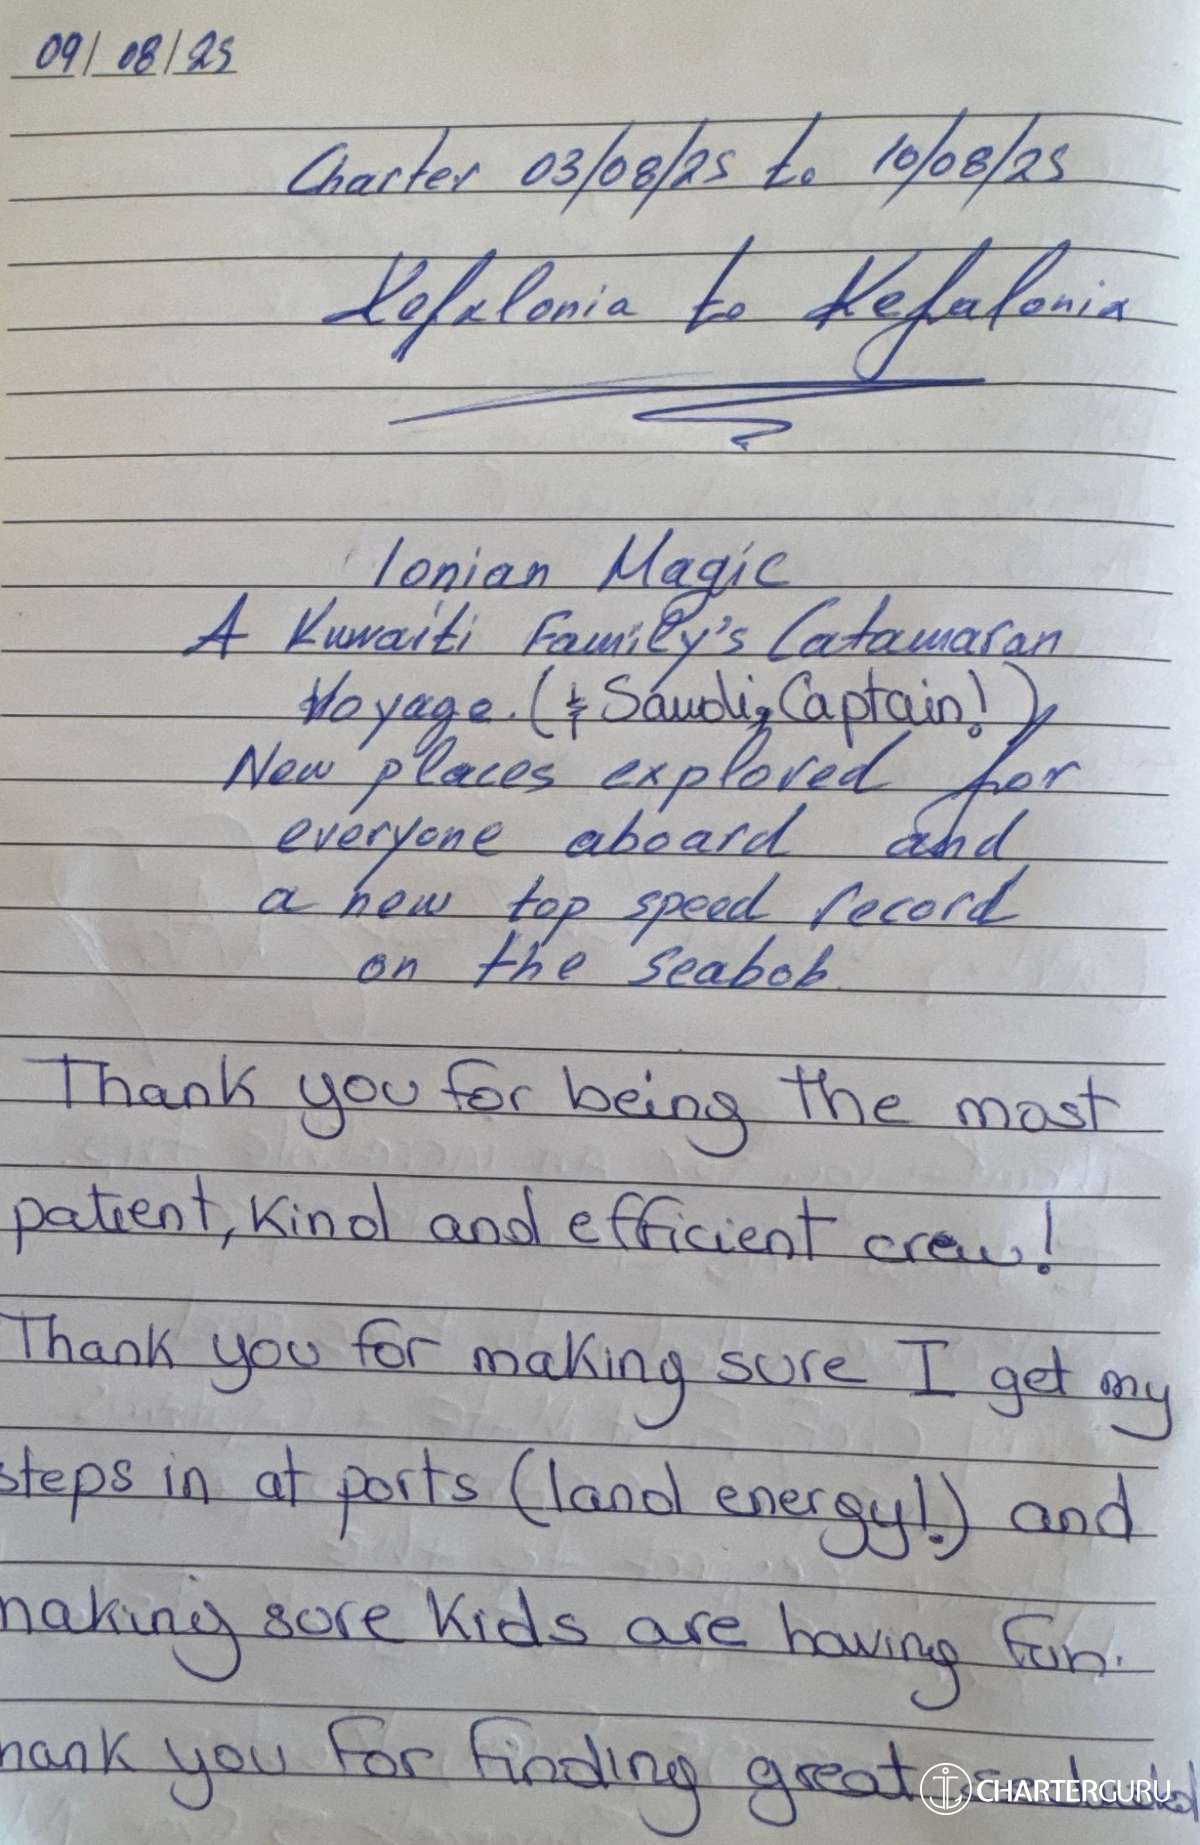 09/08/25
Charter 03/08/25 to 10/08/25
Kefalonia to Kefalonia
Ionian Magic
A Kuwaiti Family's Catamaran
Voyage. (& Saudi, Captain!)
New places explored for
everyone aboard and
a new top speed record
on the seabob.
Thank you for being the most
patient, kind and efficient crew!
Thank you for making sure I get my
steps in at ports (land energy!) and
making sure kids are having fun.
hank you for finding great
CHARTERGURU